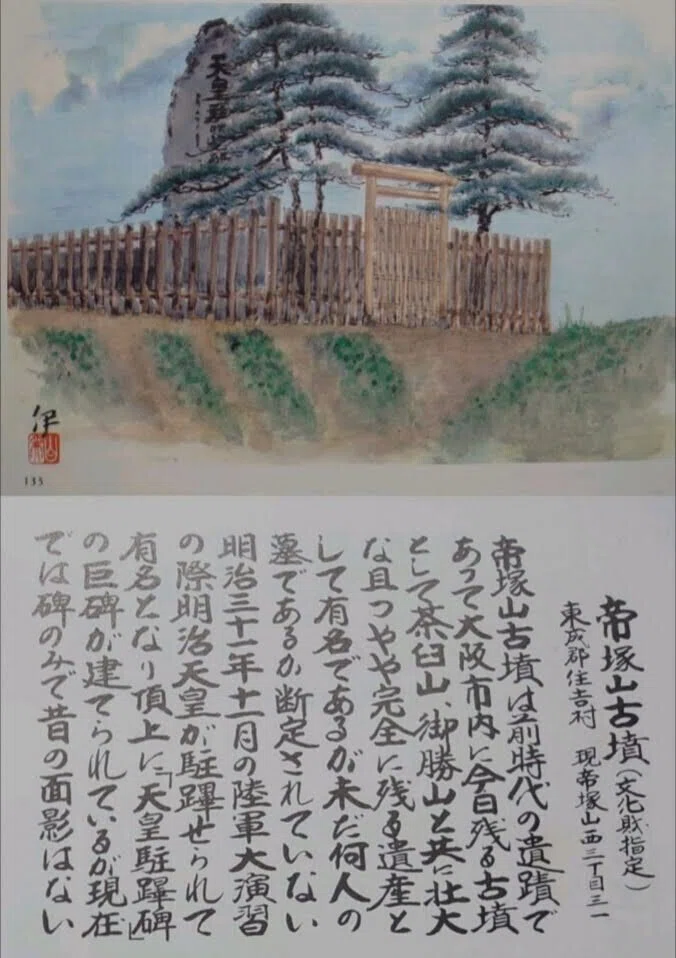 天皇駐
伊
133
帝塚山古墳(文化財指定)
東成郡住吉村 現帝塚山西二丁目三一
帝塚山古墳は前時代の遺蹟で
あって大阪市内に今日残る古墳
として茶臼山、御勝山と共に壮大
な且つやや完全に残る遺産と
して有名であるが未だ何人の
墓であるか断定されていない
明治三十一年十一月の陸軍大演習
の際明治天皇が駐蹕せられて
有名となり頂上に「天皇駐蹕碑」
の巨碑が建てられているが現在
では碑のみで昔の面影はない